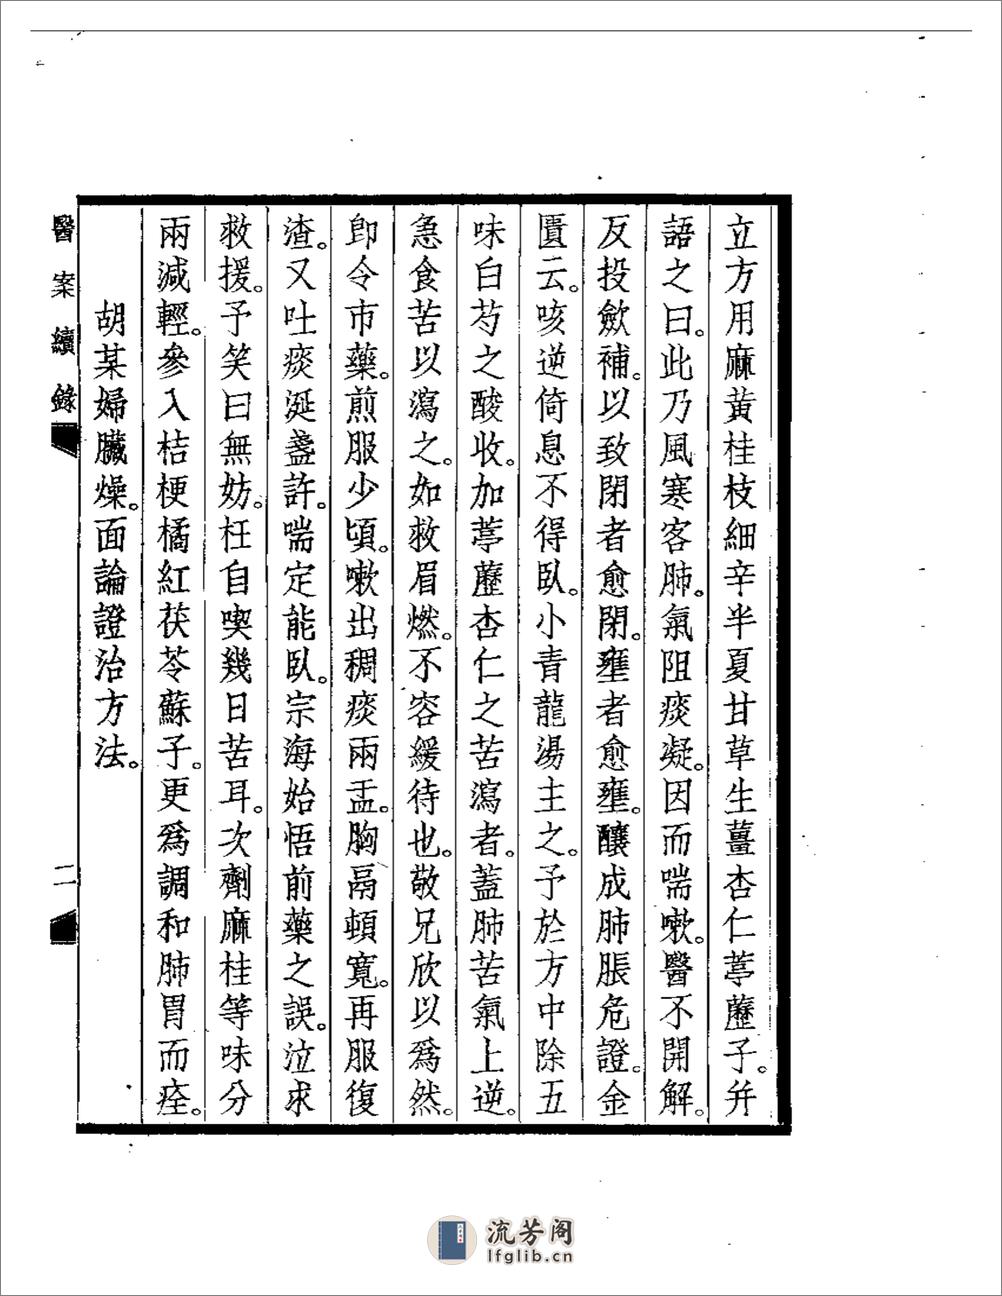 立方用麻黃桂枝細辛半夏甘草生薑杏仁葶藶子。幷
語之曰。此乃風寒客肺。氣阻痰凝。因而喘嗽。醫不開解。
反投歛補。以致閉者愈閉。壅者愈壅。釀成肺脹危證。金
匱云。咳逆倚息不得臥。小青龍湯主之。予於方中除五
味白芍之酸收。加葶藶杏仁之苦瀉者。蓋肺苦氣上逆。
急食苦以瀉之。如救眉燃。不容緩待也。敬兄欣以爲然。
卽令市藥。煎服少頃。嗽出稠痰兩盂。胸鬲頓寬。再服復
渣。又吐痰涎盞許。喘定能臥。宗海始悟前藥之誤。泣求
救援。予笑曰無妨。枉自喫幾日苦耳。次劑麻桂等味分
兩減輕。參入桔梗橘紅茯苓蘇子。更爲調和肺胃而痊。
胡某婦臟燥。面論證治方法。
醫案續錄
二
流芳阁
lfglib.cn